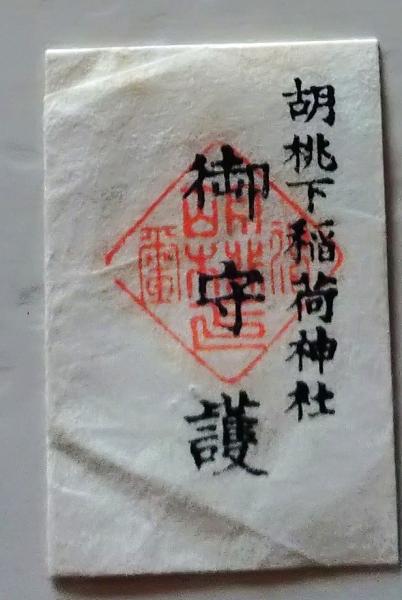 胡桃下稲荷神社
御守護